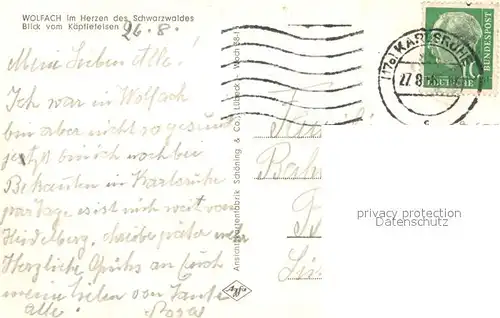 WOLFACH im Herzen des Schwarzwaldes
Blick vom Käpflefelsen
26.8.
Meine Lieben Alle!
Ich war in Wolfach
bin aber nicht so gesund
jetzt bin ich noch bei
Bekannten in Karlsruhe
paar Tage es ist nich weit von
Heidelberg, schreibe mehr
Herzliche Grüße an Euch
meine Lieben von Tante
alle. Rosa
Ansichtskartenfabrik Schöning & Co., Lübeck
(17a) KARLSRUHE
27.8.
10
DEUTSCHE
BUNDESPOST
privacy protection
www.oldthing.de